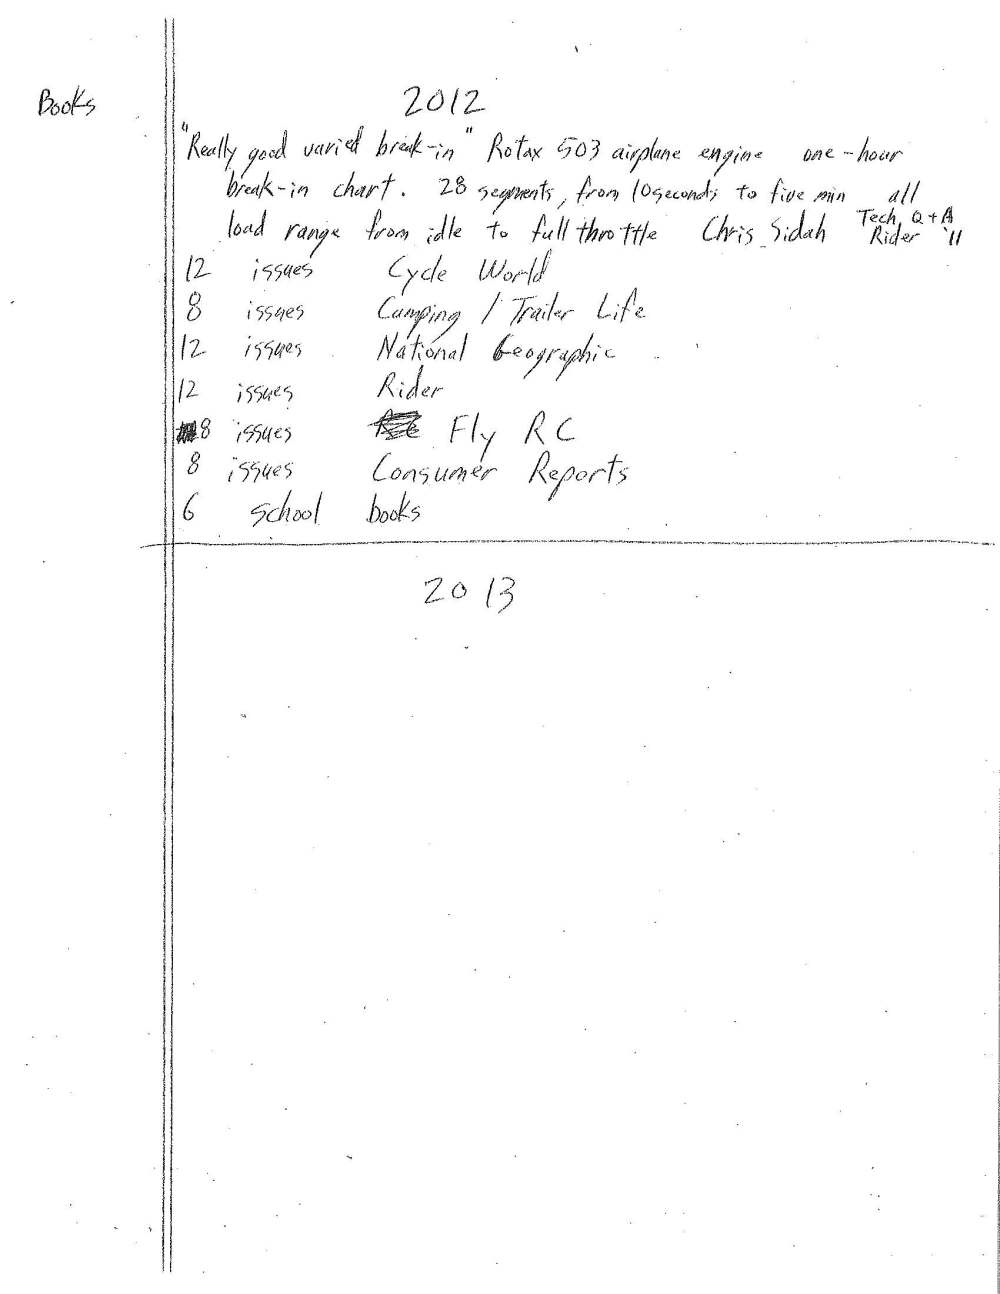 Books
2012
"Really good varied break-in" Rotax 503 airplane engine one-hour
break-in chart. 28 segments, from 10seconds to five min all
load range from idle to full throttle Chris Sidah Tech Q+A
Rider '11
12 issues Cycle World
8 issues Camping / Trailer Life
12 issues National Geographic
12 issues Rider
8 issues Fly RC
8 issues Consumer Reports
6 school books
2013